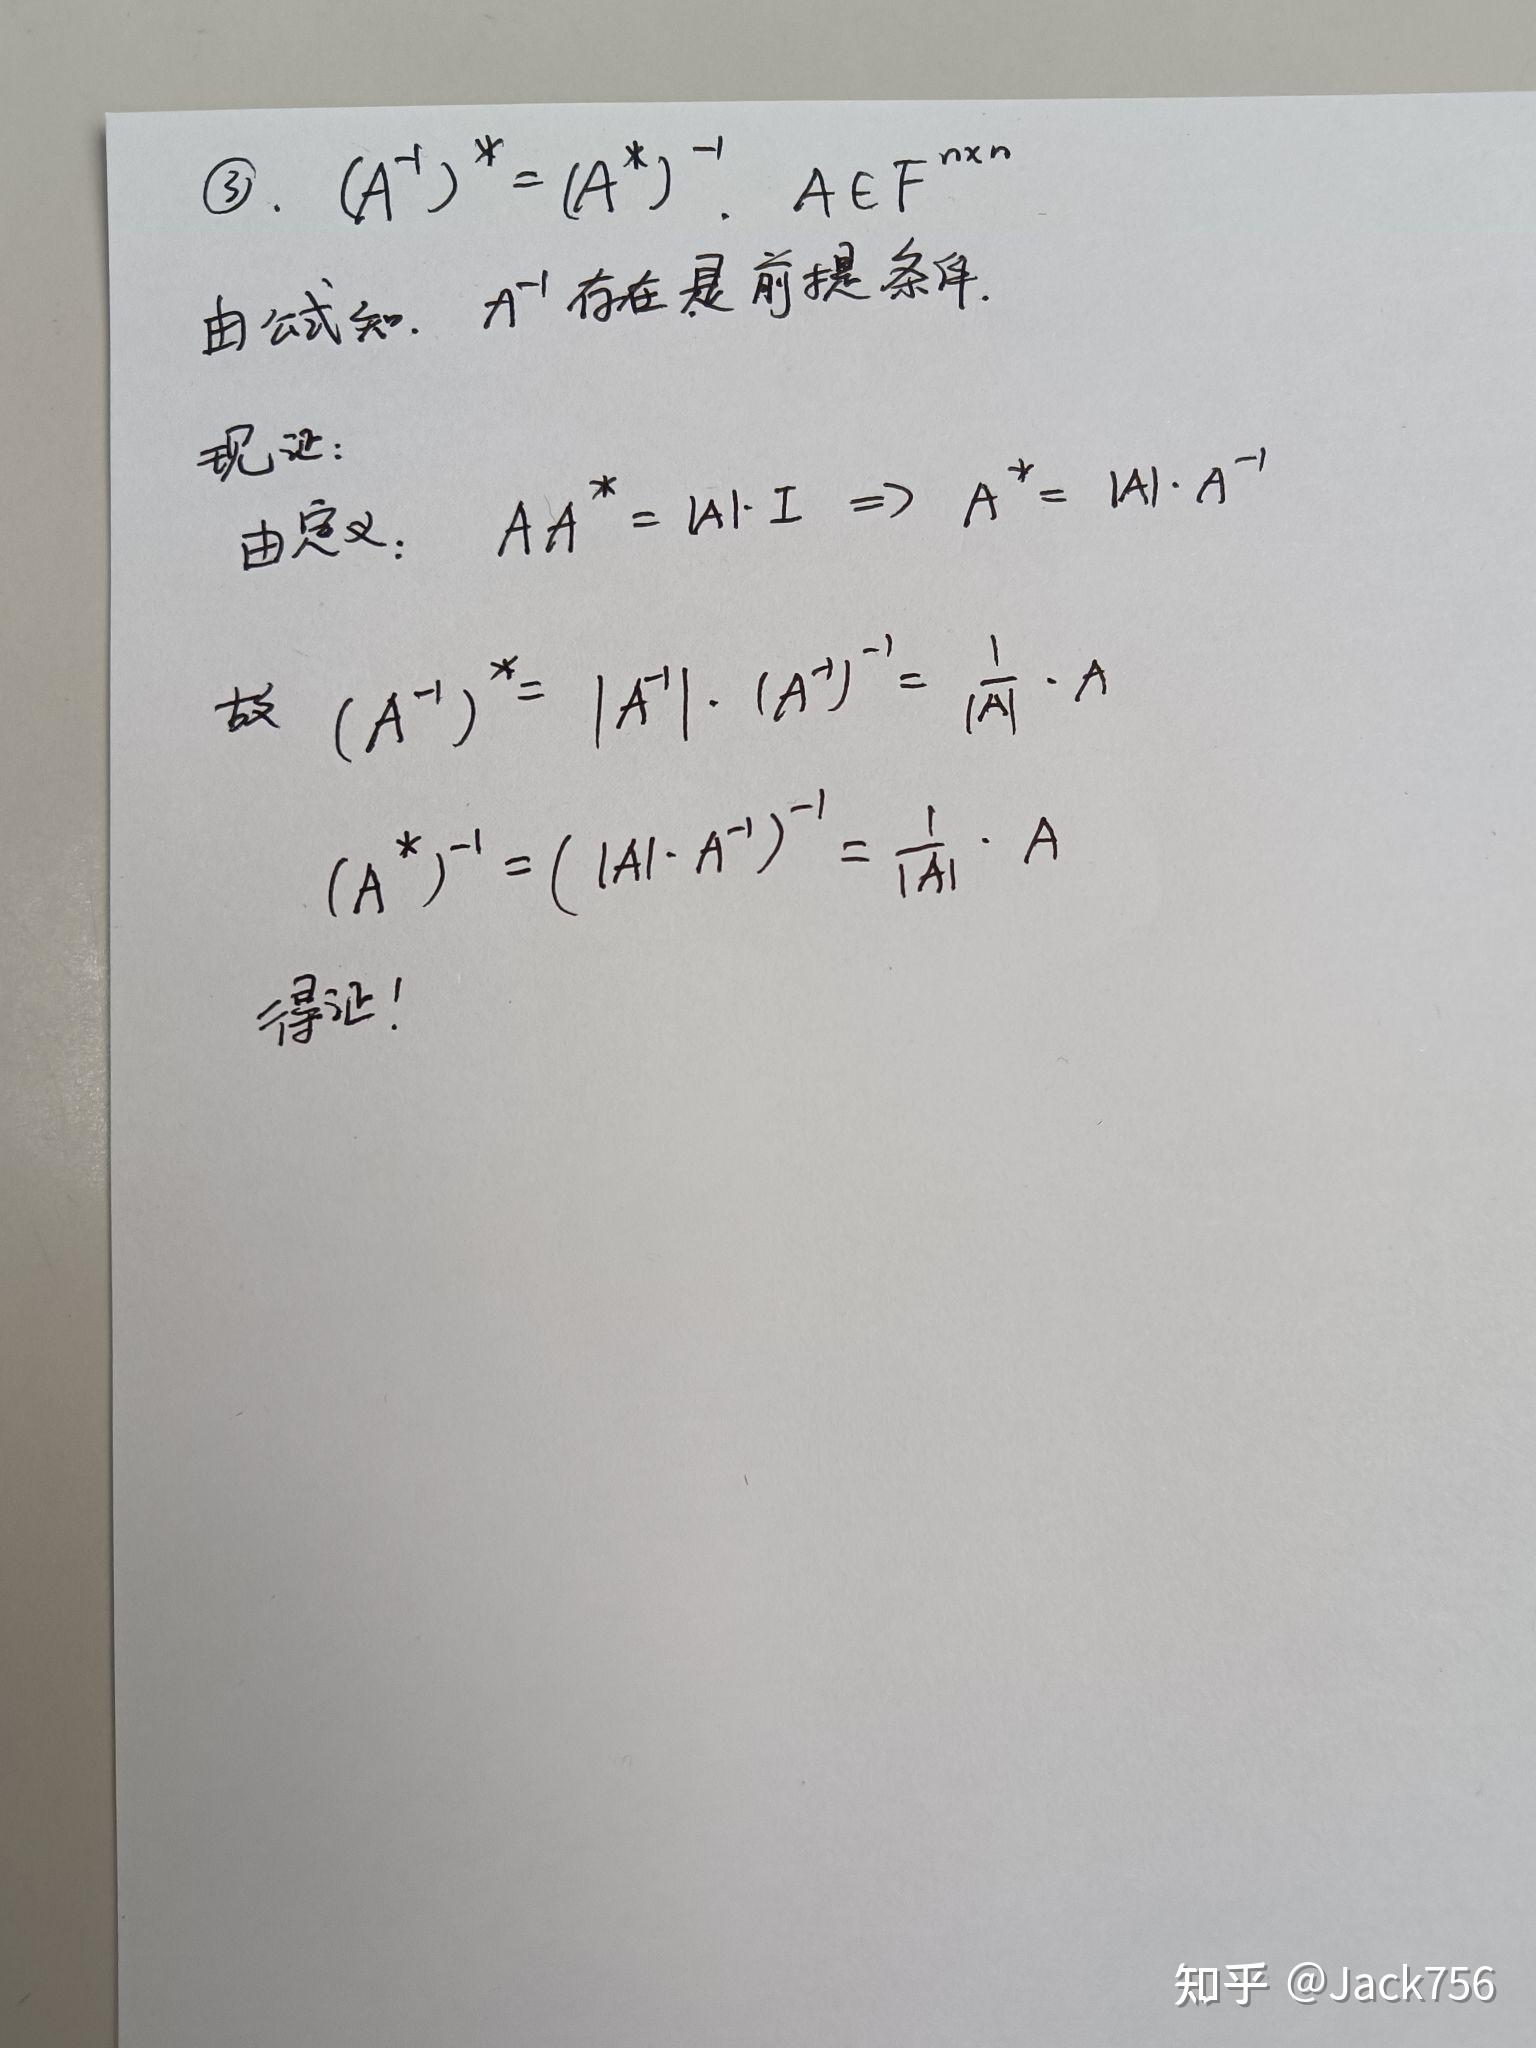 ③. (A⁻¹)* = (A*)⁻¹. A∈F^{n×n}
由公式知. A⁻¹存在是前提条件.
现证:
由定义: AA* = |A|·I => A* = |A|·A⁻¹
故 (A⁻¹)* = |A⁻¹|·(A⁻¹)⁻¹ = 1/|A| · A
(A*)⁻¹ = (|A|·A⁻¹)⁻¹ = 1/|A| · A
得证!
知乎 @Jack756